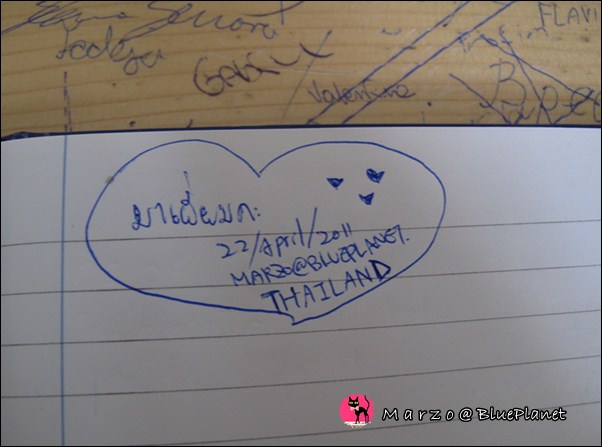 FLAVI
Gabi
Valentina
B
มาเยี่ยมค่ะ
22/April/2011
MARZO@BLUEPLANET.
THAILAND
Marzo@BluePlanet